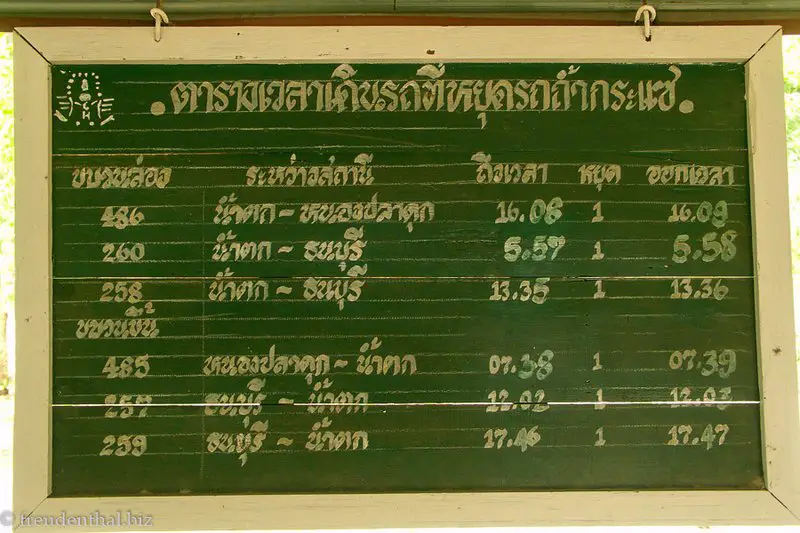 ตารางเวลาเดินรถที่หยุดรถถ้ำกระแซ
ขบวนล่อง ระหว่างสถานี ถึงเวลา หยุด ออกเวลา
486 น้ำตก - หนองปลาดุก 16.08 1 16.09
260 น้ำตก - ธนบุรี 5.57 1 5.58
258 น้ำตก - ธนบุรี 13.35 1 13.36
ขบวนขึ้น
485 หนองปลาดุก - น้ำตก 07.38 1 07.39
257 ธนบุรี - น้ำตก 12.02 1 12.03
259 ธนบุรี - น้ำตก 17.46 1 17.47
© freudenthal.biz